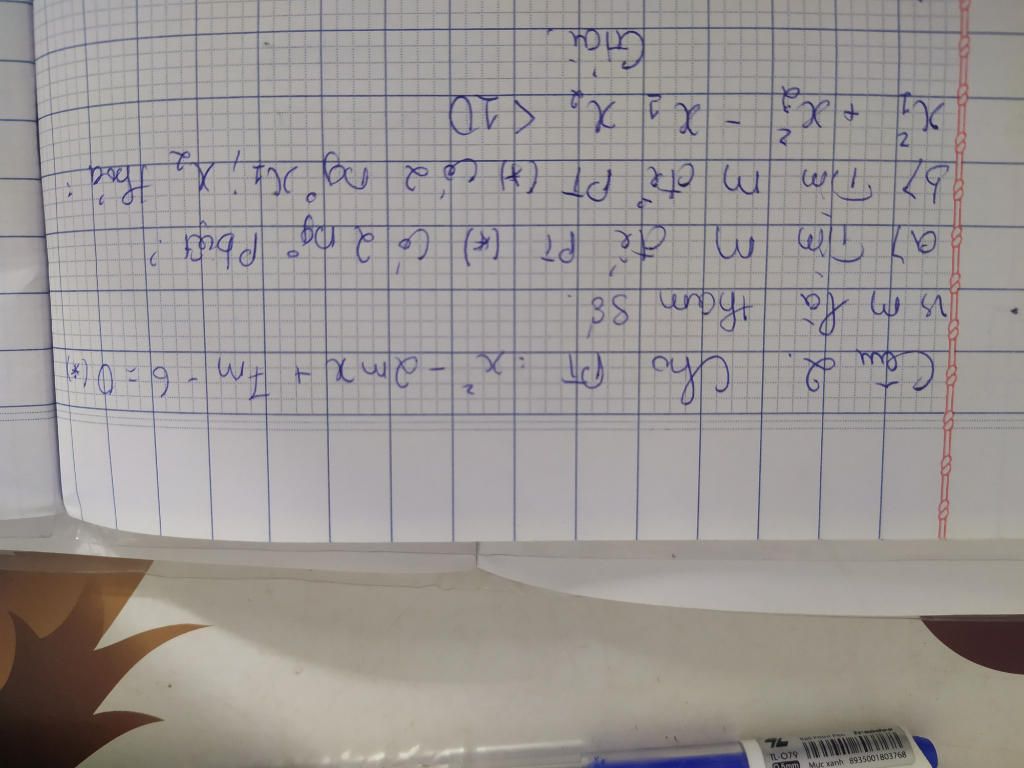 Câu 2. Cho PT: x² - 2mx + 7m - 6 = 0 (*)
vs m là tham số.
a) Tìm m để PT (*) có 2 ngº pbiệt?
b) Tìm m để PT (*) có 2 ngº x₁, x₂ thoả:
x₁² + x₂² - x₁ x₂ < 10
Giải.
TL-079 0.5mm
Mực xanh 8935001803768